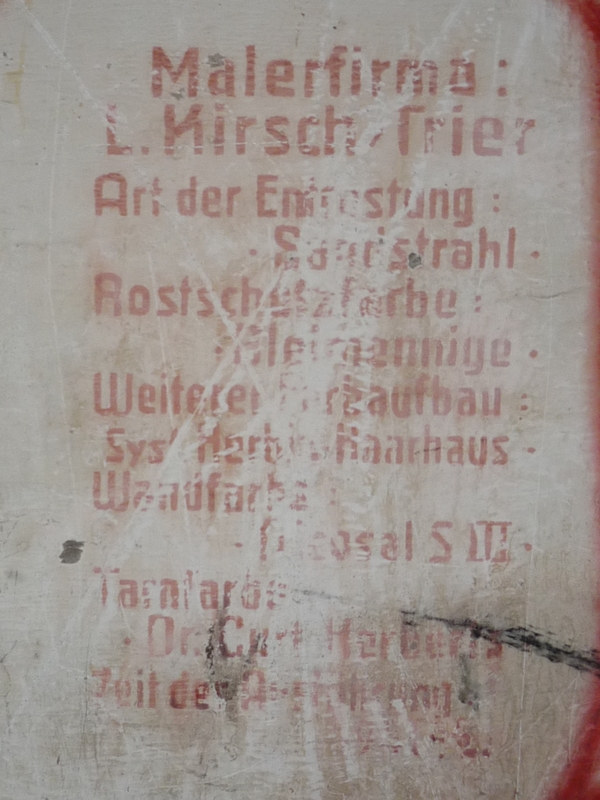 Malerfirma :
L. Kirsch, Trier
Art der Entrostung :
· Sandstrahl ·
Rostschutzfarbe :
· Bleimennige ·
Weiterer Farbaufbau :
Syst. Herbig-Haarhaus ·
Wandfarbe :
S III ·
Tarnfarbe
· Dr. Curt Herberts
Zeit der Ausführung